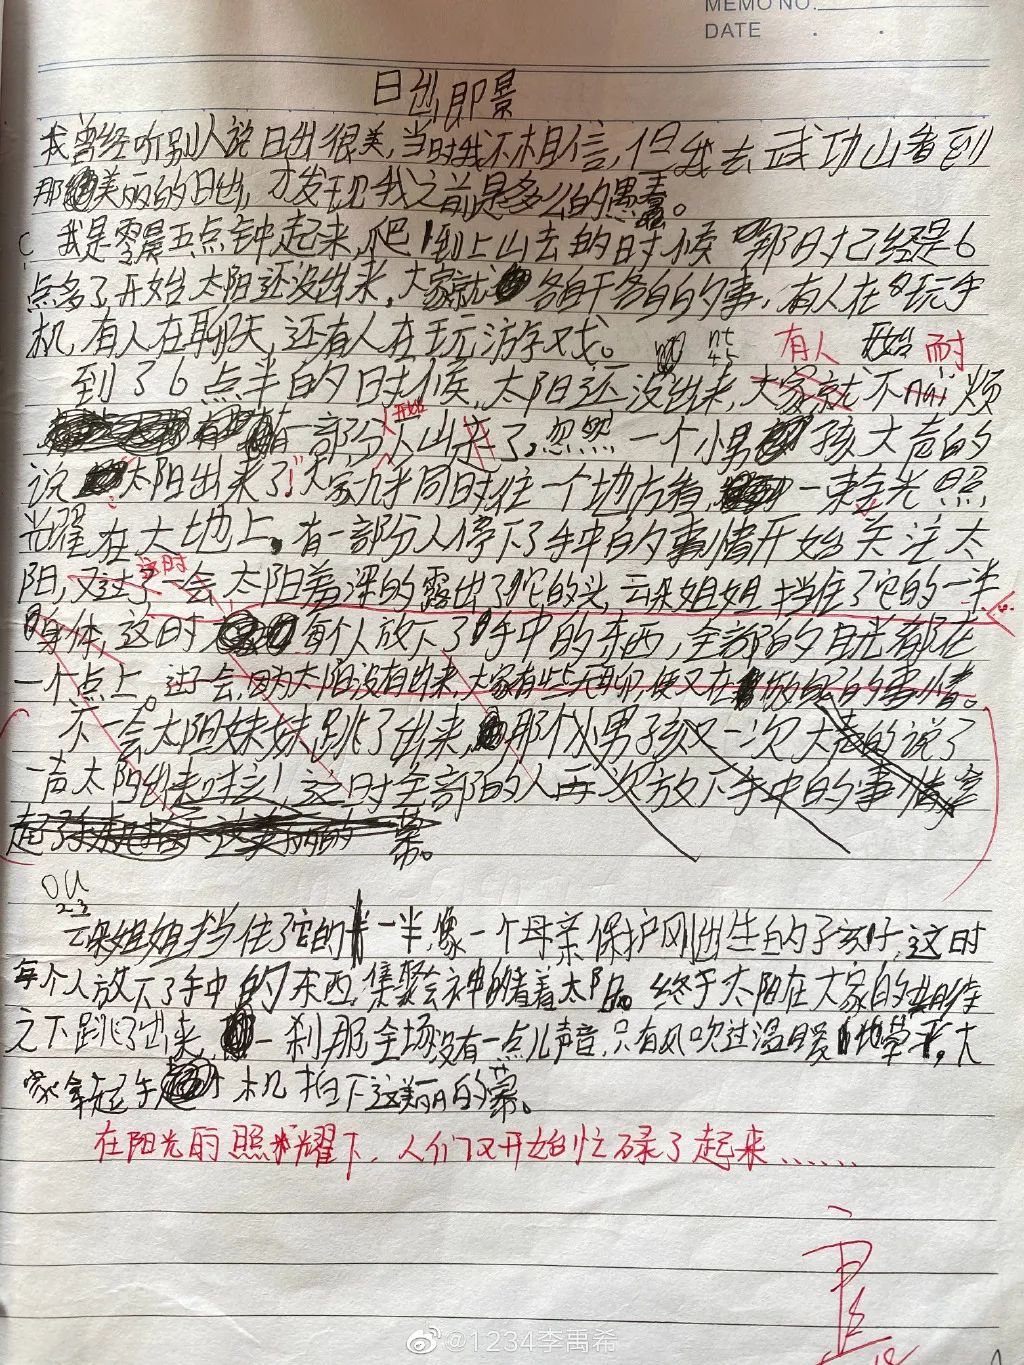 MEMO NO.
DATE
日出即景
我曾经听别人说日出很美,当时我不相信,但我去武功山看到
那美丽的日出,才发现我之前是多么的愚蠢。
我是零晨五点钟起来,爬到上山去的时候 那时已经是6
点多了开始太阳还没出来,大家就各自干各自的事,有人在玩手
机 有人在聊天,还有人在玩游戏。
有人 开始 耐
到了6点半的时候,太阳还没出来,大家就不耐烦
有一部分人山来了。忽然一个小男孩大声的
说 太阳出来了!大家几乎同时往一个地方看,一束金光照
光耀在大地上。有一部分人停下了手中的事情开始关注太
这时
阳,又过了一会太阳羞深的露出了它的头,云朵姐姐挡住了它的一半
身体,这时 每个人放下了手中的东西,全部的目光都在
一个点上。过了会,因为太阳没有出来,大家有些无聊便又在做自己的事情。
不一会太阳妹妹跳了出来,那个小男孩又一次大声的说了
一声太阳出来啦!,这时全部的人再次放下手中的事情拿
起了手机拍下这美丽的一幕。
云朵姐姐挡住了它的一半,像一个母亲保护刚出生的子孩仔,这时
每个人放下了手中的东西,集聚会神的看着太阳。终于太阳在大家的期待
之下跳了出来,一刹那全场没有一点儿声音,只有风吹过温暖的草,大
家拿起手机拍下这美丽的一幕。
在阳光的照耀下,人们又开始忙碌了起来......
@1234李禹希